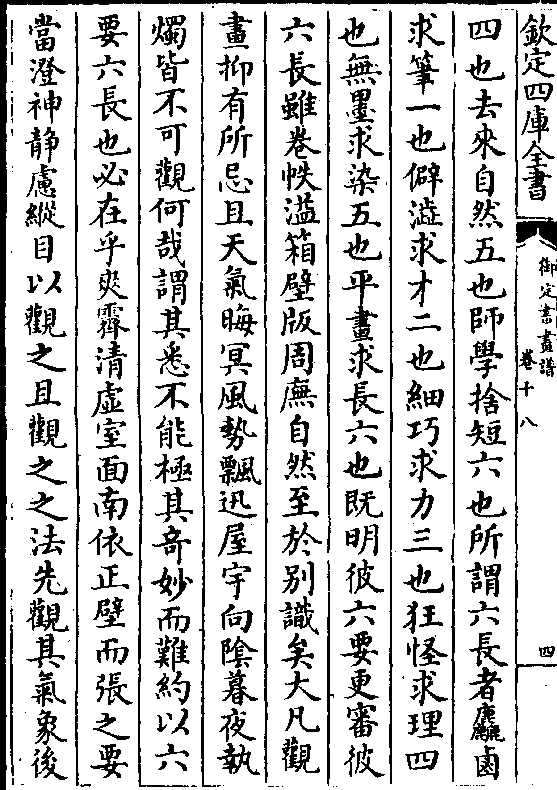 欽定四庫全書
御定書畫譜
卷十八
四
四也去來自然五也師學捨短六也所謂六長者麤鹵
求筆一也僻澁求才二也細巧求力三也狂怪求理四
也無墨求染五也平畫求長六也既明彼六要更審彼
六長雖卷帙溢箱壁版周廡自然至於別識矣大凡觀
畫抑有所忌且天氣晦冥風勢飄迅屋宇向陰暮夜執
燭皆不可觀何哉謂其悉不能極其奇妙而難約以六
要六長也必在乎爽霽清虛室面南依正壁而張之要
當澄神靜慮縱目以觀之且觀之之法先觀其氣象後